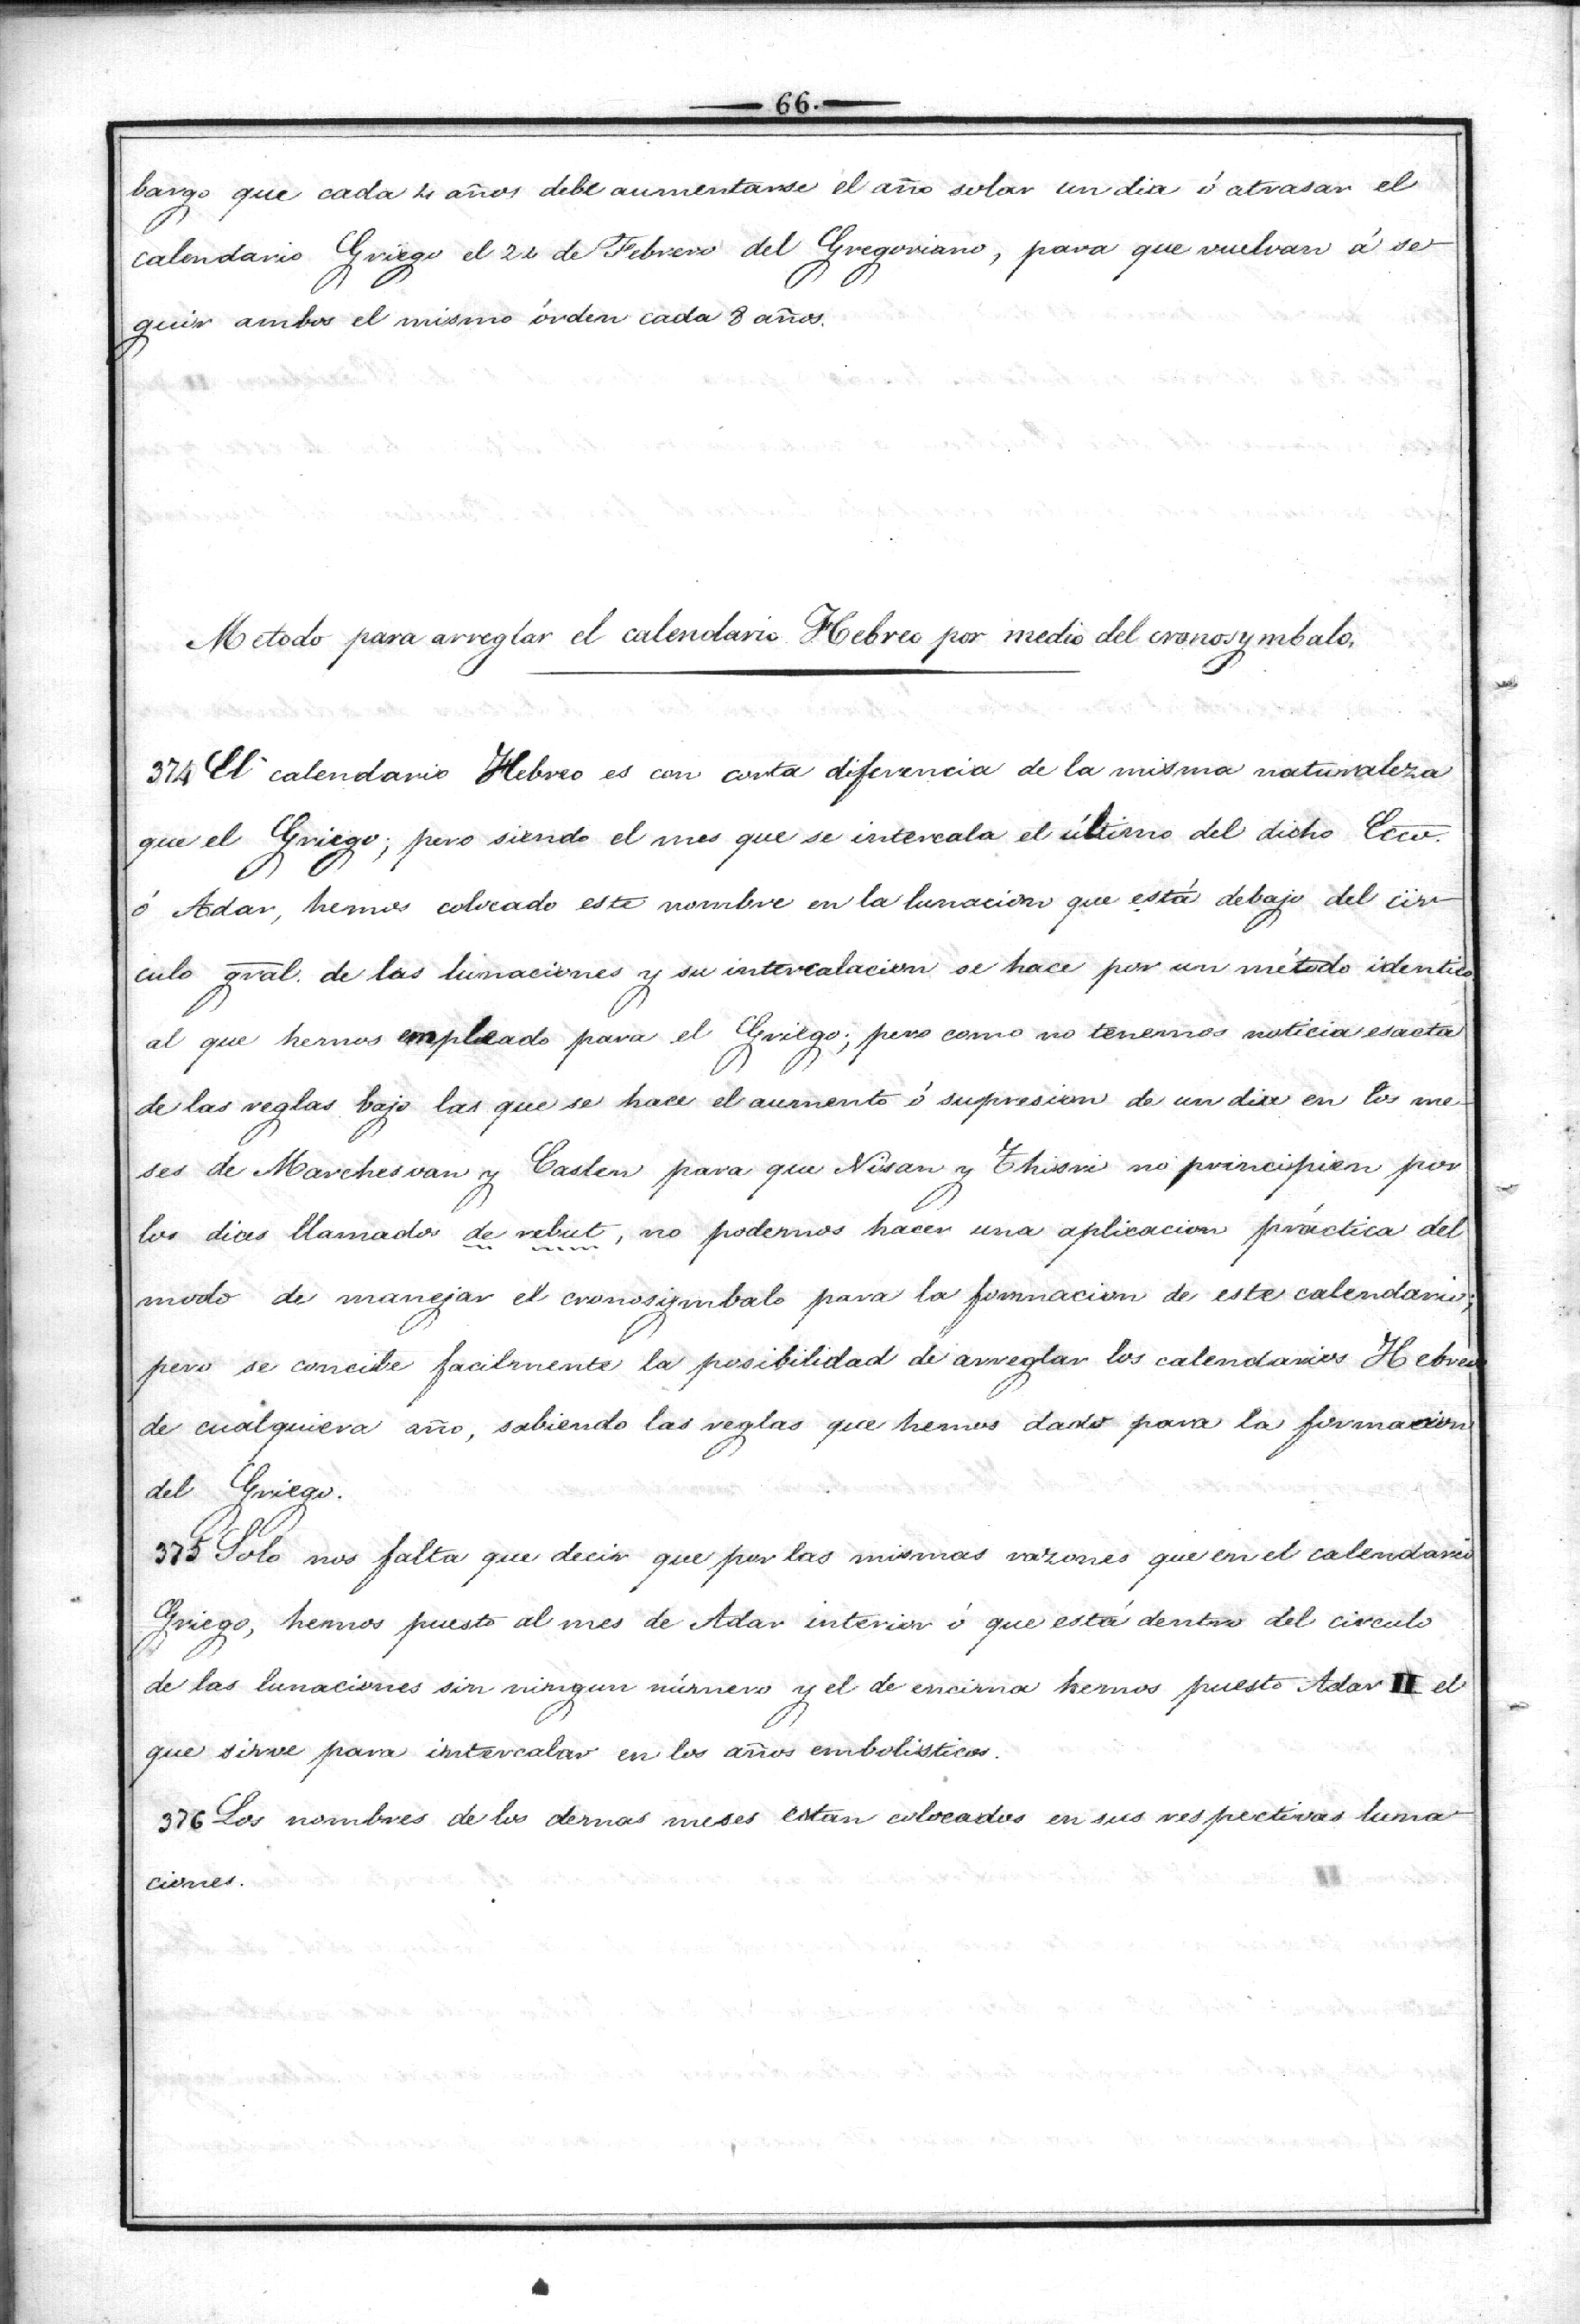 66.
bargo que cada 4 años debe aumentarse el año solar un dia ó atrasar el
calendario Griego el 24 de Febrero del Gregoriano, para que vuelvan á se-
guir ambos el mismo órden cada 8 años.
Metodo para arreglar el calendario Hebreo por medio del cronosymbalo.
374 El calendario Hebreo es con corta diferencia de la misma naturaleza
que el Griego; pero siendo el mes que se intercala el último del dicho
ó Adar, hemos colocado este nombre en la lunacion que está debajo del cir-
culo gral. de las lunaciones y su intercalacion se hace por un método identico
al que hemos empleado para el Griego; pero como no tenemos noticia esacta
de las reglas bajo las que se hace el aumento ó supresion de un dia en los me-
ses de Marchesvan y Casleu para que Nisan y Thisri no principien por
los dias llamados de rebut, no podemos hacer una aplicacion práctica del
modo de manejar el cronosymbalo para la formacion de este calendario;
pero se concibe facilmente la posibilidad de arreglar los calendarios Hebreos
de cualquiera año, sabiendo las reglas que hemos dado para la formacion
del Griego.
375 Solo nos falta que decir que por las mismas razones que en el calendario
Griego, hemos puesto al mes de Adar interior ó que está dentro del circulo
de las lunaciones sin ningun número y el de encima hemos puesto Adar II el
que sirve para intercalar en los años embolisticos.
376 Los nombres de los demas meses estan colocados en sus respectivas luna-
ciones.